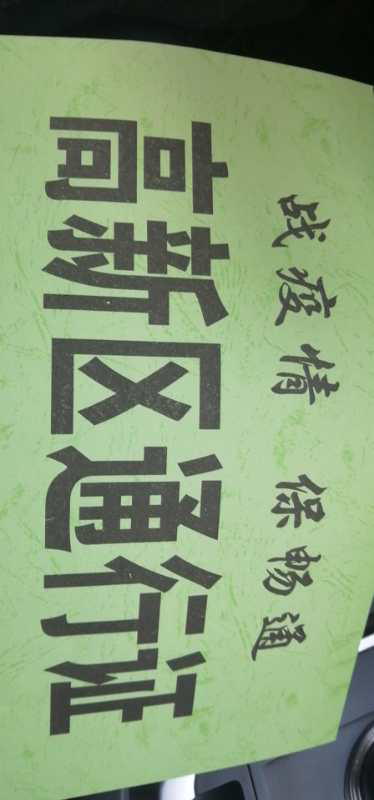 战疫情 保畅通
高新区通行证